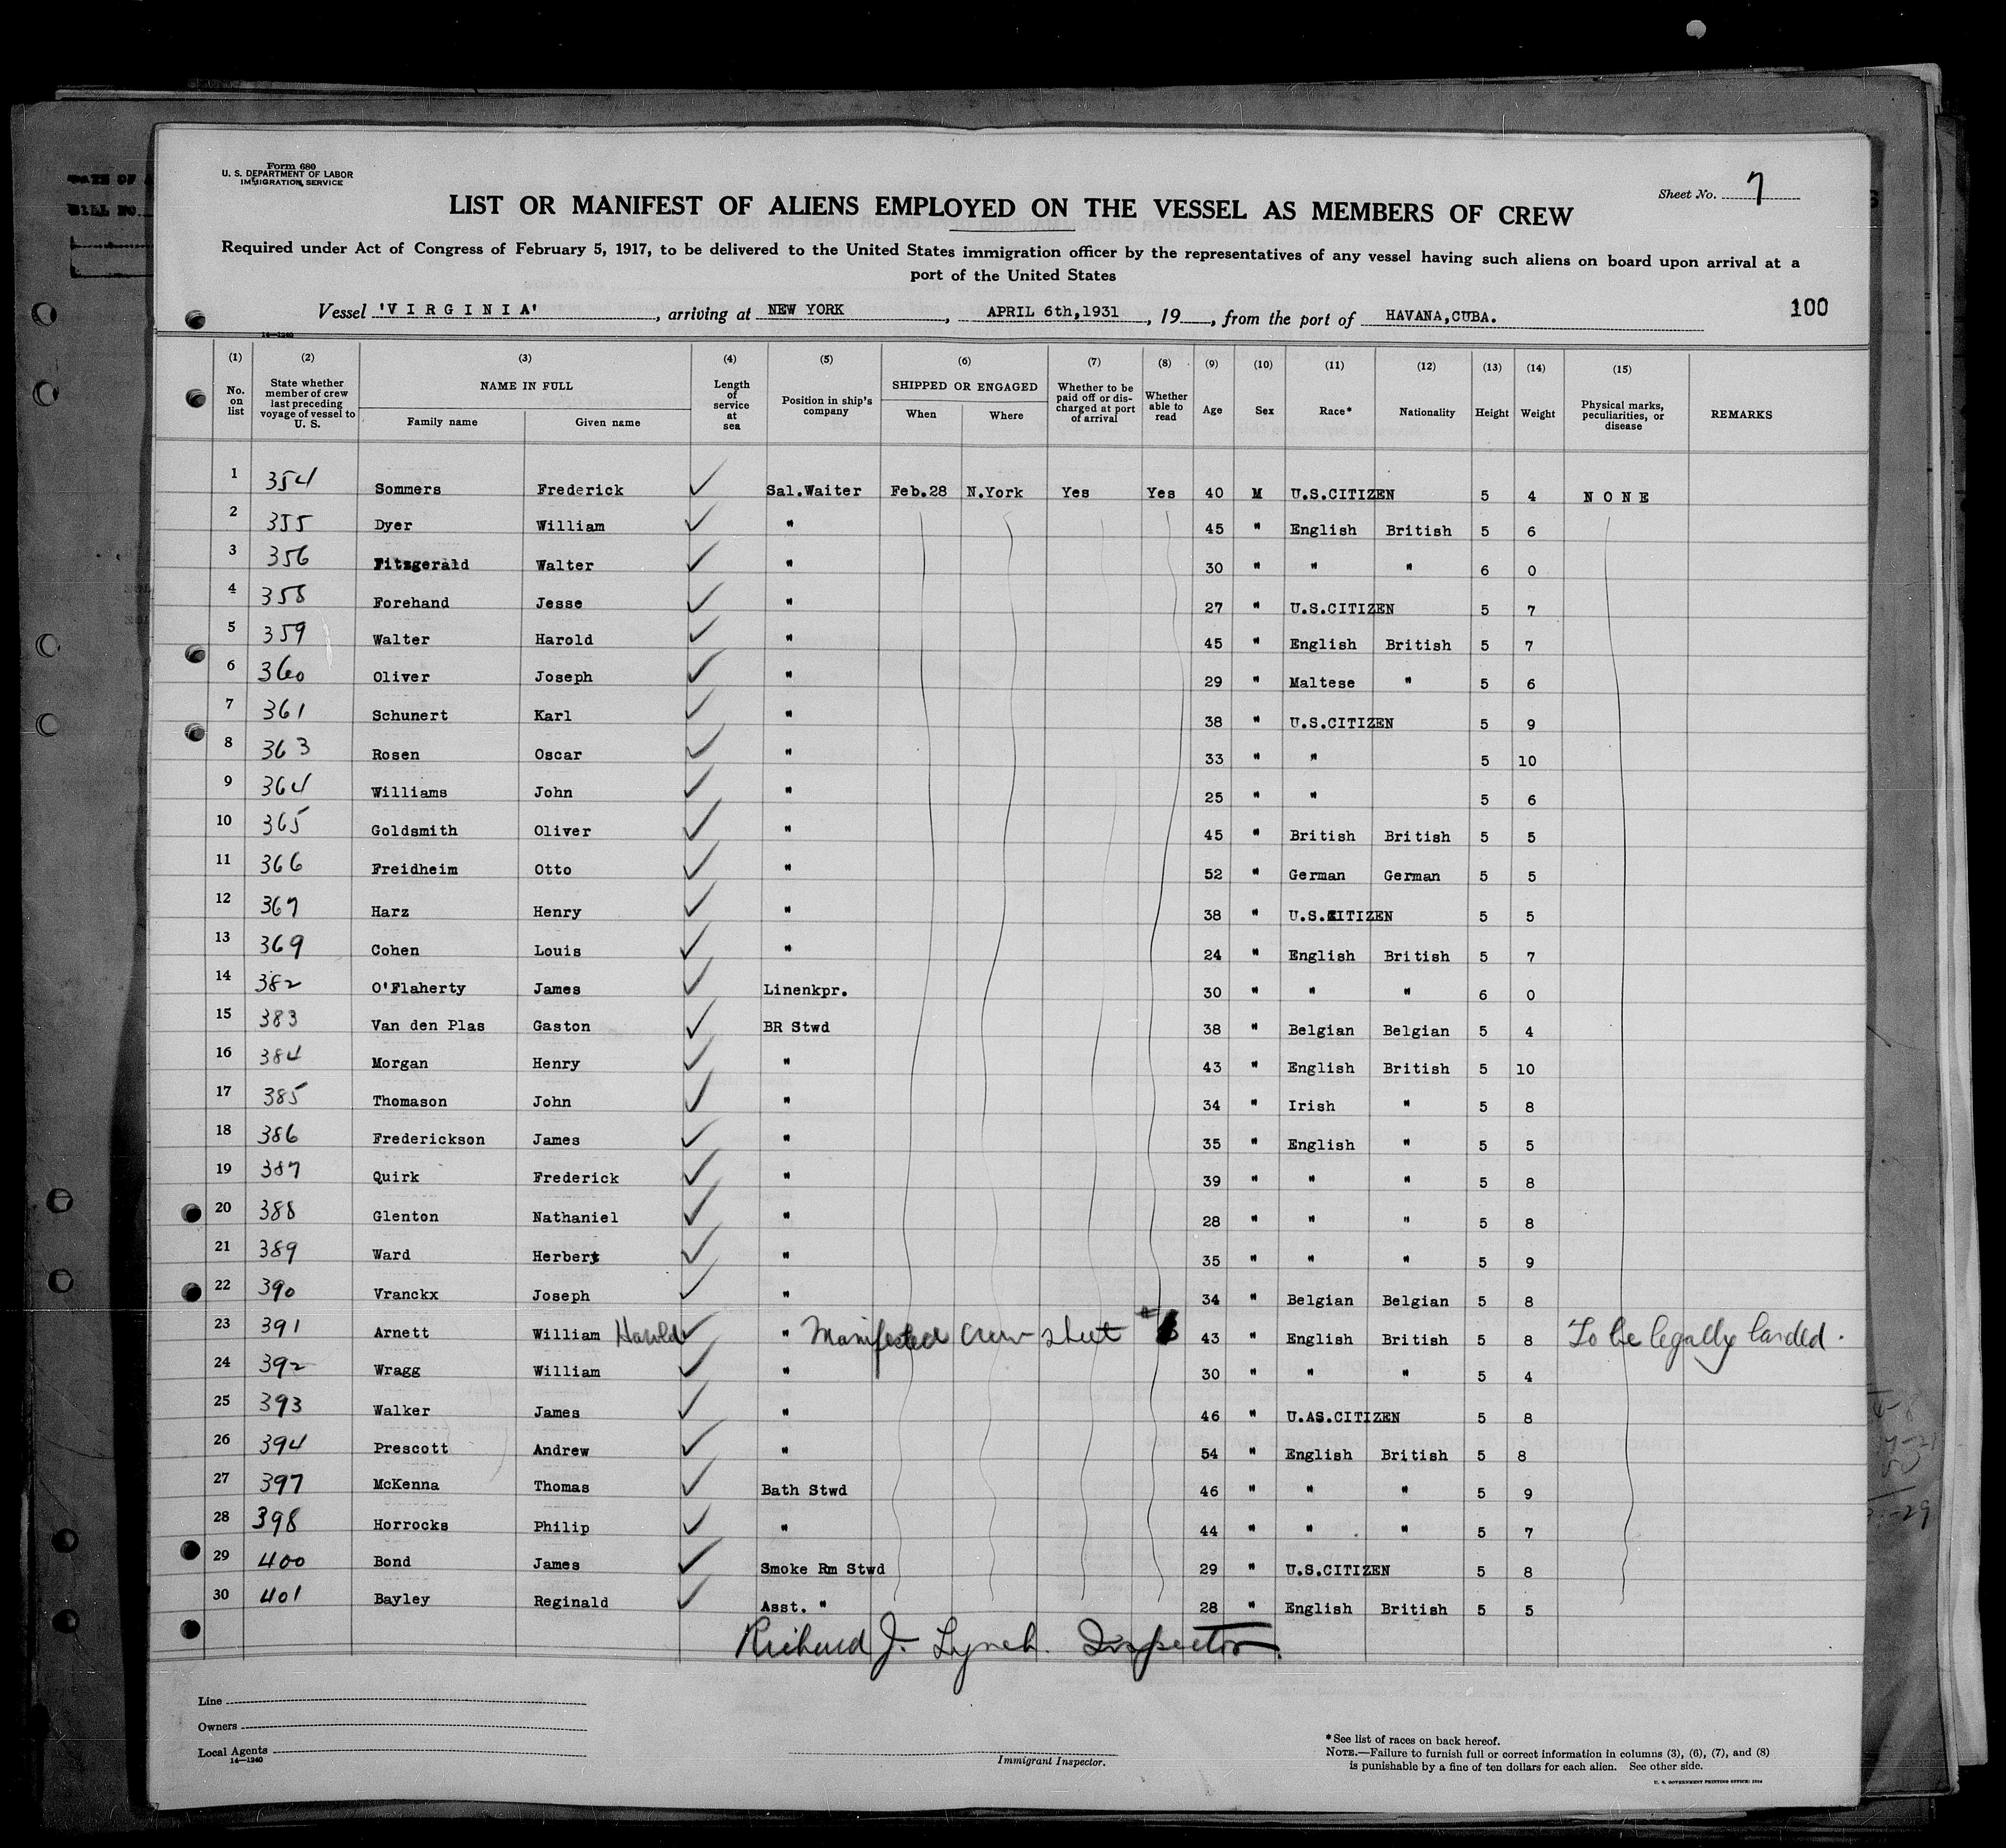 Form 680
U. S. DEPARTMENT OF LABOR
IMMIGRATION SERVICE
Sheet No. 7
LIST OR MANIFEST OF ALIENS EMPLOYED ON THE VESSEL AS MEMBERS OF CREW
Required under Act of Congress of February 5, 1917, to be delivered to the United States immigration officer by the representatives of any vessel having such aliens on board upon arrival at a
port of the United States
Vessel 'V I R G I N I A' , arriving at NEW YORK , APRIL 6th,1931 , 19 , from the port of HAVANA,CUBA. 100
14—1240
(1) (2) (3) (4) (5) (6) (7) (8) (9) (10) (11) (12) (13) (14) (15)
No. on list State whether member of crew last preceding voyage of vessel to U. S. NAME IN FULL Family name Given name Length of service at sea Position in ship's company SHIPPED OR ENGAGED When Where Whether to be paid off or discharged at port of arrival Whether able to read Age Sex Race* Nationality Height Weight Physical marks, peculiarities, or disease REMARKS
1 354 Sommers Frederick ✓ Sal.Waiter Feb.28 N.York Yes Yes 40 M U.S.CITIZEN 5 4 N O N E
2 355 Dyer William ✓ " 45 " English British 5 6
3 356 Fitzgerald Walter ✓ " 30 " " " 6 0
4 358 Forehand Jesse ✓ " 27 " U.S.CITIZEN 5 7
5 359 Walter Harold ✓ " 45 " English British 5 7
6 360 Oliver Joseph ✓ " 29 " Maltese " 5 6
7 361 Schunert Karl ✓ " 38 " U.S.CITIZEN 5 9
8 363 Rosen Oscar ✓ " 33 " " 5 10
9 364 Williams John ✓ " 25 " " 5 6
10 365 Goldsmith Oliver ✓ " 45 " British British 5 5
11 366 Freidheim Otto ✓ " 52 " German German 5 5
12 367 Harz Henry ✓ " 38 " U.S.CITIZEN 5 5
13 369 Cohen Louis ✓ " 24 " English British 5 7
14 382 O'Flaherty James ✓ Linenkpr. 30 " " " 6 0
15 383 Van den Plas Gaston ✓ BR Stwd 38 " Belgian Belgian 5 4
16 384 Morgan Henry ✓ " 43 " English British 5 10
17 385 Thomason John ✓ " 34 " Irish " 5 8
18 386 Frederickson James ✓ " 35 " English " 5 5
19 387 Quirk Frederick ✓ " 39 " " " 5 8
20 388 Glenton Nathaniel ✓ " 28 " " " 5 8
21 389 Ward Herbert ✓ " 35 " " " 5 9
22 390 Vranckx Joseph ✓ " 34 " Belgian Belgian 5 8
23 391 Arnett William Harold ✓ " Manifested crew sheet # 43 " English British 5 8 To be legally landed.
24 392 Wragg William ✓ " 30 " " " 5 4
25 393 Walker James ✓ " 46 " U.AS.CITIZEN 5 8
26 394 Prescott Andrew ✓ " 54 " English British 5 8
27 397 McKenna Thomas ✓ Bath Stwd 46 " " " 5 9
28 398 Horrocks Philip ✓ " 44 " " " 5 7
29 400 Bond James ✓ Smoke Rm Stwd 29 " U.S.CITIZEN 5 8
30 401 Bayley Reginald ✓ Asst. " 28 " English British 5 5
Richard J. Lynch. Inspector.
Line
Owners
Local Agents
14—1240
Immigrant Inspector.
*See list of races on back hereof.
NOTE.—Failure to furnish full or correct information in columns (3), (6), (7), and (8)
is punishable by a fine of ten dollars for each alien. See other side.